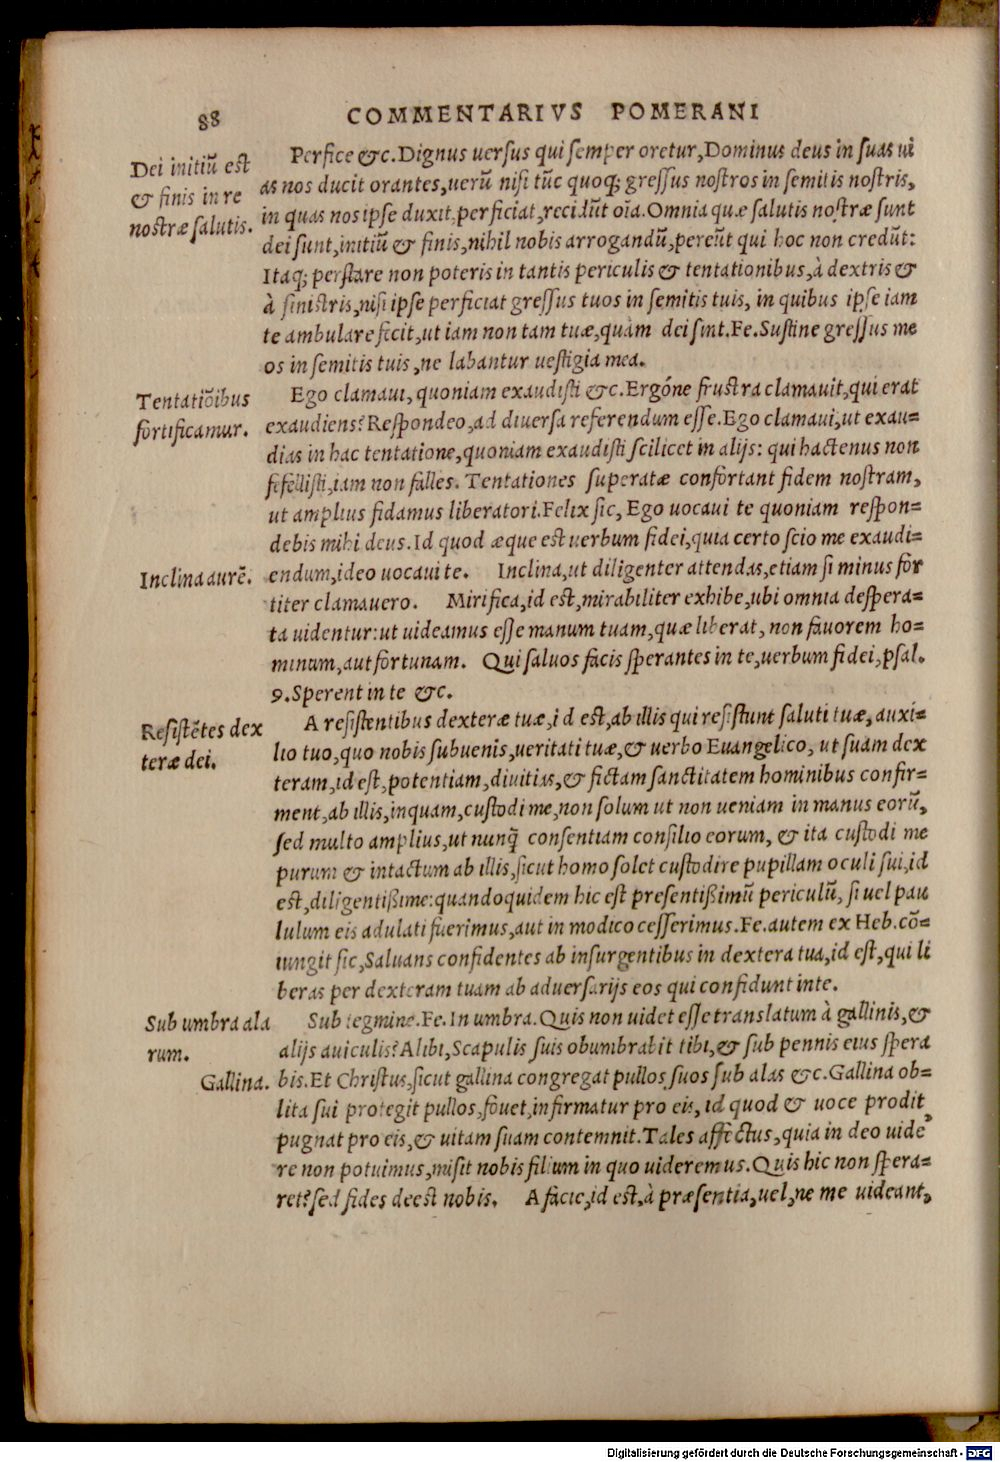 88 COMMENTARIVS POMERANI
Dei initiū est
& finis in re
nostræ salutis.
Perfice &c. Dignus uersus qui semper oretur, Dominus deus in suas ui
as nos ducit orantes, uerū nisi tūc quoq; gressus nostros in semitis nostris,
in quas nos ipse duxit, perficiat, recidūt oīa. Omnia quæ salutis nostræ sunt
dei sunt, initiū & finis, nihil nobis arrogandū, pereūt qui hoc non credūt:
Itaq; perstare non poteris in tantis periculis & tentationibus, à dextris &
à sinistris, nisi ipse perficiat gressus tuos in semitis tuis, in quibus ipse iam
te ambulare fecit, ut iam non tam tuæ, quàm dei sint. Fe. Sustine gressus me
os in semitis tuis, ne labantur uestigia mea.
Tentatiōibus
fortificamur.
Ego clamaui, quoniam exaudisti &c. Ergóne frustra clamauit, qui erat
exaudiens? Respondeo, ad diuersa referendum esse. Ego clamaui, ut exau=
dias in hac tentatione, quoniam exaudisti scilicet in alijs: qui hactenus non
fefellisti, iam non falles. Tentationes superatæ confortant fidem nostram,
ut amplius fidamus liberatori. Felix sic, Ego uocaui te quoniam respon=
debis mihi deus. Id quod æque est uerbum fidei, quia certo scio me exaudi=
Inclina aurē.
endum, ideo uocaui te. Inclina, ut diligenter attendas, etiam si minus for
titer clamauero. Mirifica, id est, mirabiliter exhibe, ubi omnia despera=
ta uidentur: ut uideamus esse manum tuam, quæ liberat, non fauorem ho=
minum, aut fortunam. Qui saluos facis sperantes in te, uerbum fidei, psal.
9. Sperent in te &c.
Resistētes dex
teræ dei.
A resistentibus dexteræ tuæ, id est, ab illis qui resistunt saluti tuæ, auxi=
lio tuo, quo nobis subuenis, ueritati tuæ, & uerbo Euangelico, ut suam dex
teram, id est, potentiam, diuitias, & fictam sanctitatem hominibus confir=
ment, ab illis, inquam, custodi me, non solum ut non ueniam in manus eorū,
sed multo amplius, ut nunq̄ consentiam consilio eorum, & ita custodi me
purum & intactum ab illis, sicut homo solet custodire pupillam oculi sui, id
est, diligentißime: quandoquidem hic est presentißimū periculū, si uel pau
lulum eis adulati fuerimus, aut in modico cesserimus. Fe. autem ex Heb. cō=
iungit sic, Saluans confidentes ab insurgentibus in dextera tua, id est, qui li
beras per dexteram tuam ab aduersarijs eos qui confidunt in te.
Sub umbra ala
rum.
Gallina.
Sub tegmine. Fe. In umbra. Quis non uidet esse translatum à gallinis, &
alijs auiculis? Alibi, Scapulis suis obumbrabit tibi, & sub pennis eius spera
bis. Et Christus, sicut gallina congregat pullos suos sub alas &c. Gallina ob=
lita sui protegit pullos, fouet, infirmatur pro eis, id quod & uoce prodit,
pugnat pro eis, & uitam suam contemnit. Tales affectus, quia in deo uide
re non potuimus, misit nobis filium in quo uideremus. Quis hic non spera=
ret? sed fides deest nobis. A facie, id est, à præsentia, uel, ne me uideant,
Digitalisierung gefördert durch die Deutsche Forschungsgemeinschaft - DFG